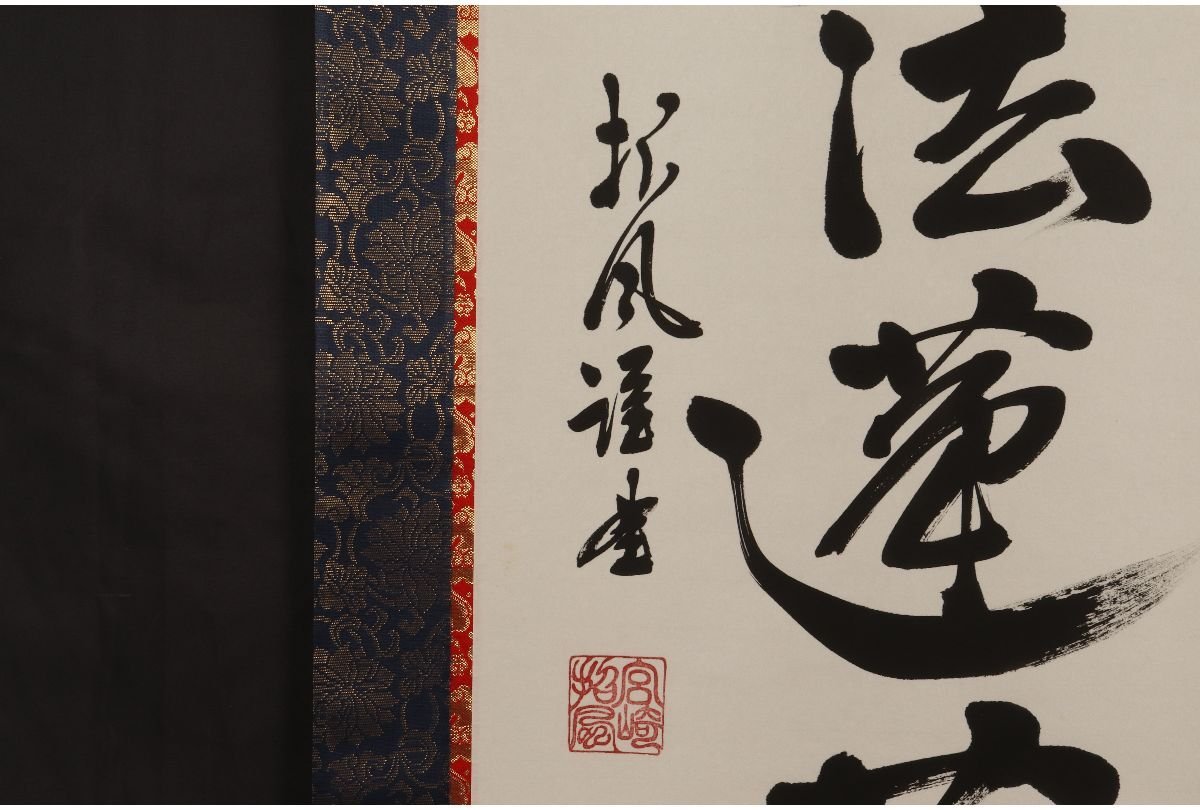 法蓮
招風謹書
宮崎
招風